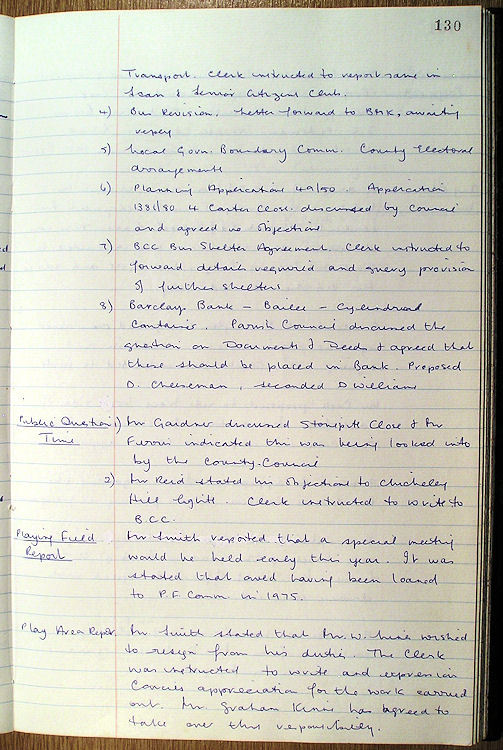 130
Transport. Clerk instructed to report same in
Scan & Senior Citizens Club.
4) Bus Revision. Letter forward to BMK, awaiting
reply
5) Local Govn. Boundary Comm. County Electoral
arrangements
6) Planning Application 49/80. Application
1381/80 4 Carter Close. discussed by Council
and agreed no objections
7) BCC Bus Shelter Agreement. Clerk instructed to
forward details required and query provision
of further shelters
8) Barclays Bank - Bailee - Cylindrical
Container. Parish Council discussed the
question on Documents & Deeds & agreed that
these should be placed in Bank. Proposed
D. Cheeseman, seconded D Williams
Public Question 1) Mr Gardner discussed Stonepitt Close & Mr
Time indicated this was being looked into
by the County Council
2) Mr Reid stated his objections to Chicheley
Hill lights. Clerk instructed to write to
BCC.
Playing Field Mr Smith reported that a special meeting
Report would be held early this year. It was
stated that having been loaned
to P.F Comm in 1975.
Play Area Report. Mr Smith stated that Mr. W. wished
to resign from his duties. The Clerk
was instructed to write and express in
Councils appreciation for the work carried
out. Mr. Graham has agreed to
take over this responsibility.